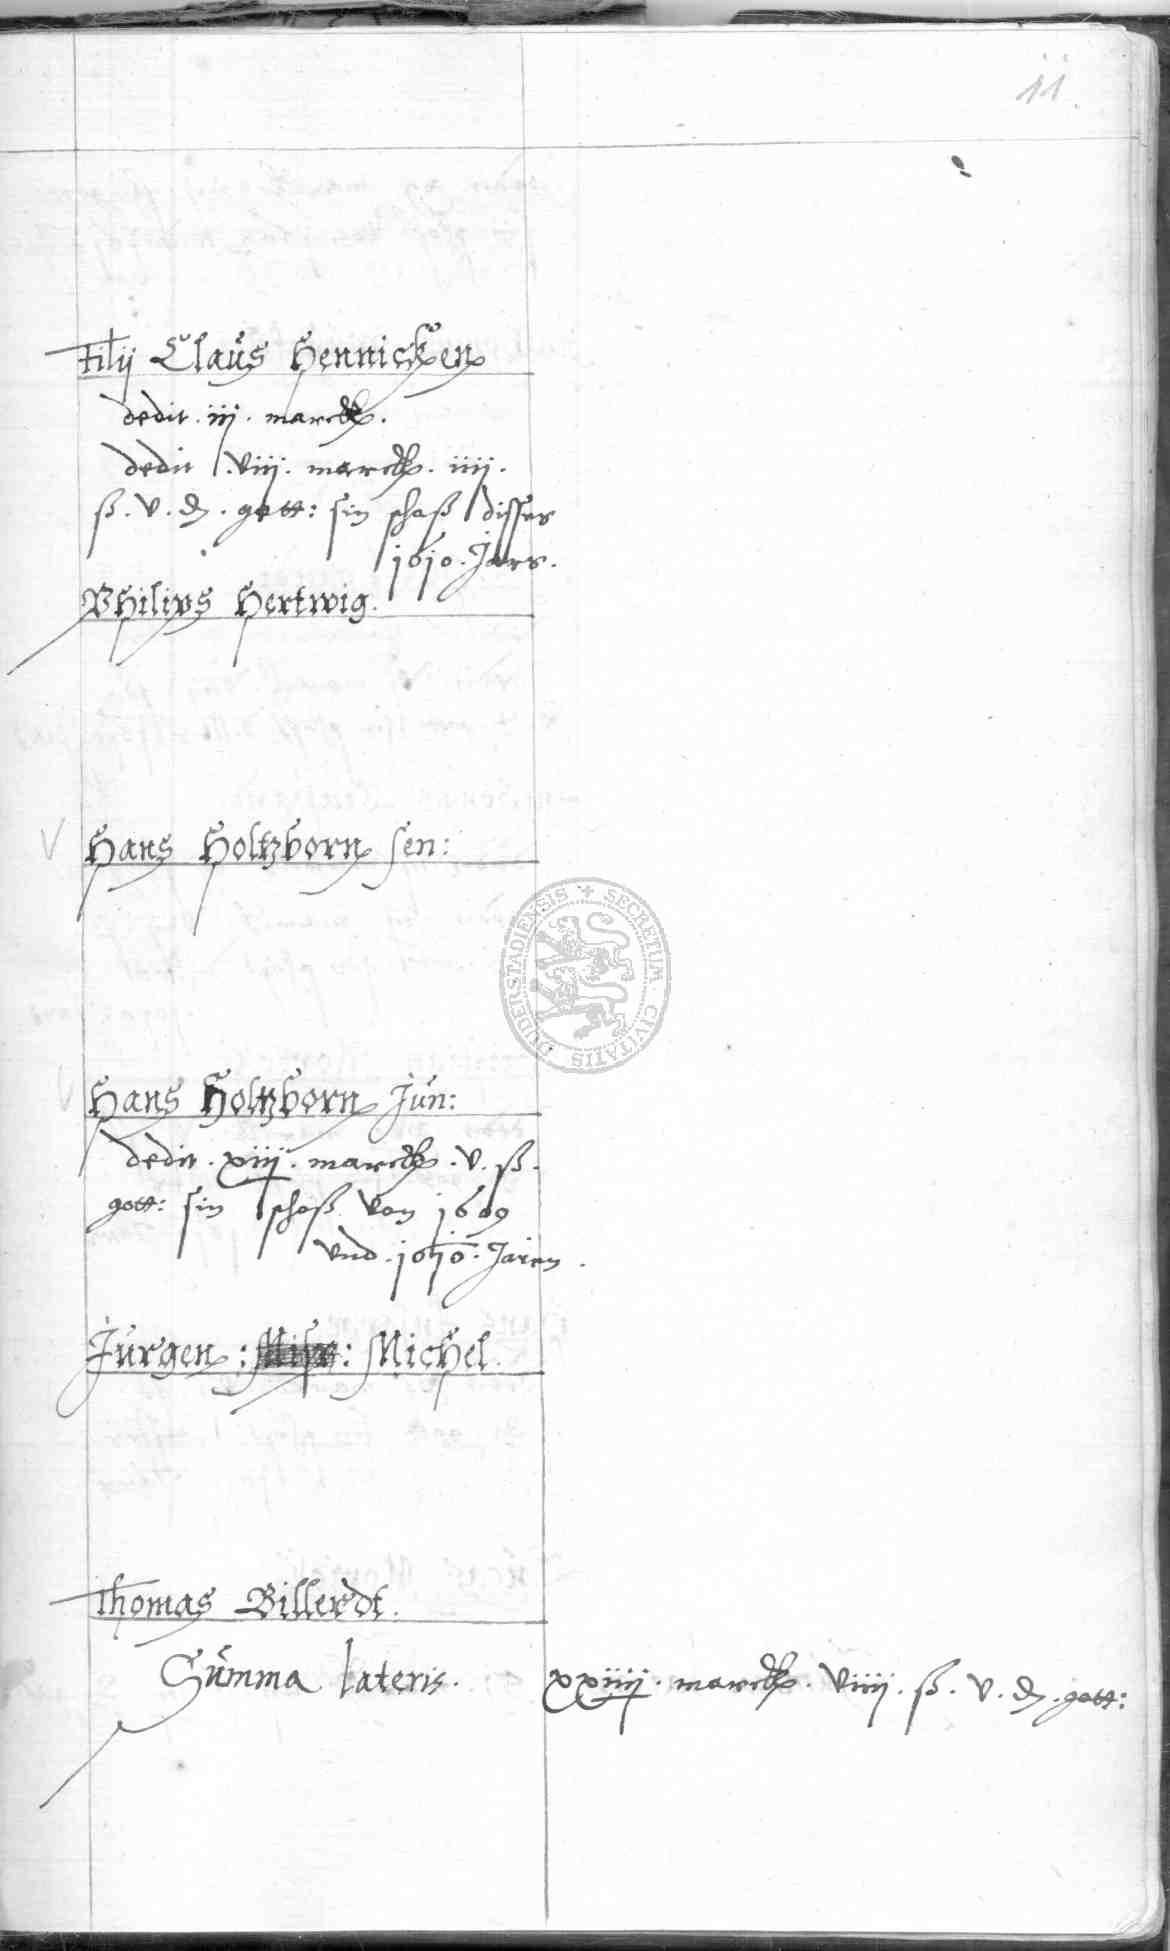 11.
Filij Claus Hennicken
dedit . iij . marck .
dedit . viij . marck . iiij .
ß . v . d . gott : sin schoß disses
1610 . Jars .
Philips Hertwig .
V Hans Holtzborn sen :
V Hans Holtzborn Jun :
dedit . xiij . marck . v . ß .
gott : sin schoß von 1609
vnd . 1610 . Jaren .
Jurgen : : Michel .
Thomas Billerdt .
Summa lateris . xxiiij . marck . viiij . ß . v . d . gott :
DUDERSTADIENSIS + SECRETUM CIVITATIS